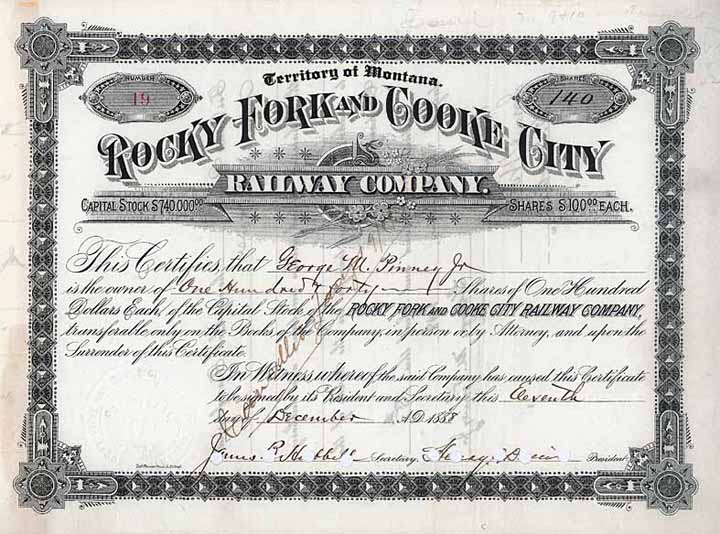 Territory of Montana.
NUMBER
19
SHARES
140
ROCKY FORK AND COOKE CITY
RAILWAY COMPANY.
CAPITAL STOCK $740,000.00
SHARES $100.00 EACH.
This Certifies, that George M. Pinney Jr
is the owner of One Hundred & forty Shares of One Hundred
Dollars Each, of the Capital Stock of the ROCKY FORK AND COOKE CITY RAILWAY COMPANY,
transferable only on the Books of the Company, in person or by Attorney, and upon the
Surrender of this Certificate.
In Witness whereof the said Company has caused this Certificate
to be signed by its President and Secretary this Eleventh
day of December A.D. 1888
James Secretary. President.